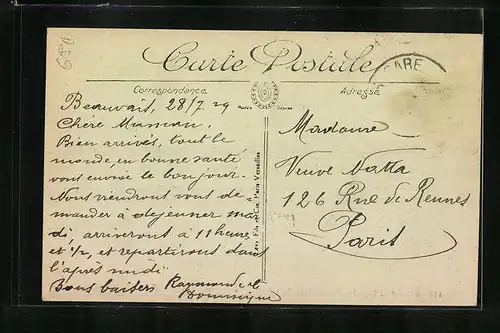 Carte Postale
GARE
Correspondance
Adresse
Beauvais, 28/7 29
Chère Maman,
Bien arrivés, tout le
monde en bonne santé
vous envoie le bonjour.
Nous viendrons vous de-
mander à déjeuner mar
di, arriverons à 11 heures
et 1/2, et repartirons dans
l'après midi
Bons baisers Raymonde et
Dominique
Madame
Veuve Natta
126 Rue de Rennes
Paris
Fils et Cie, Paris Versailles